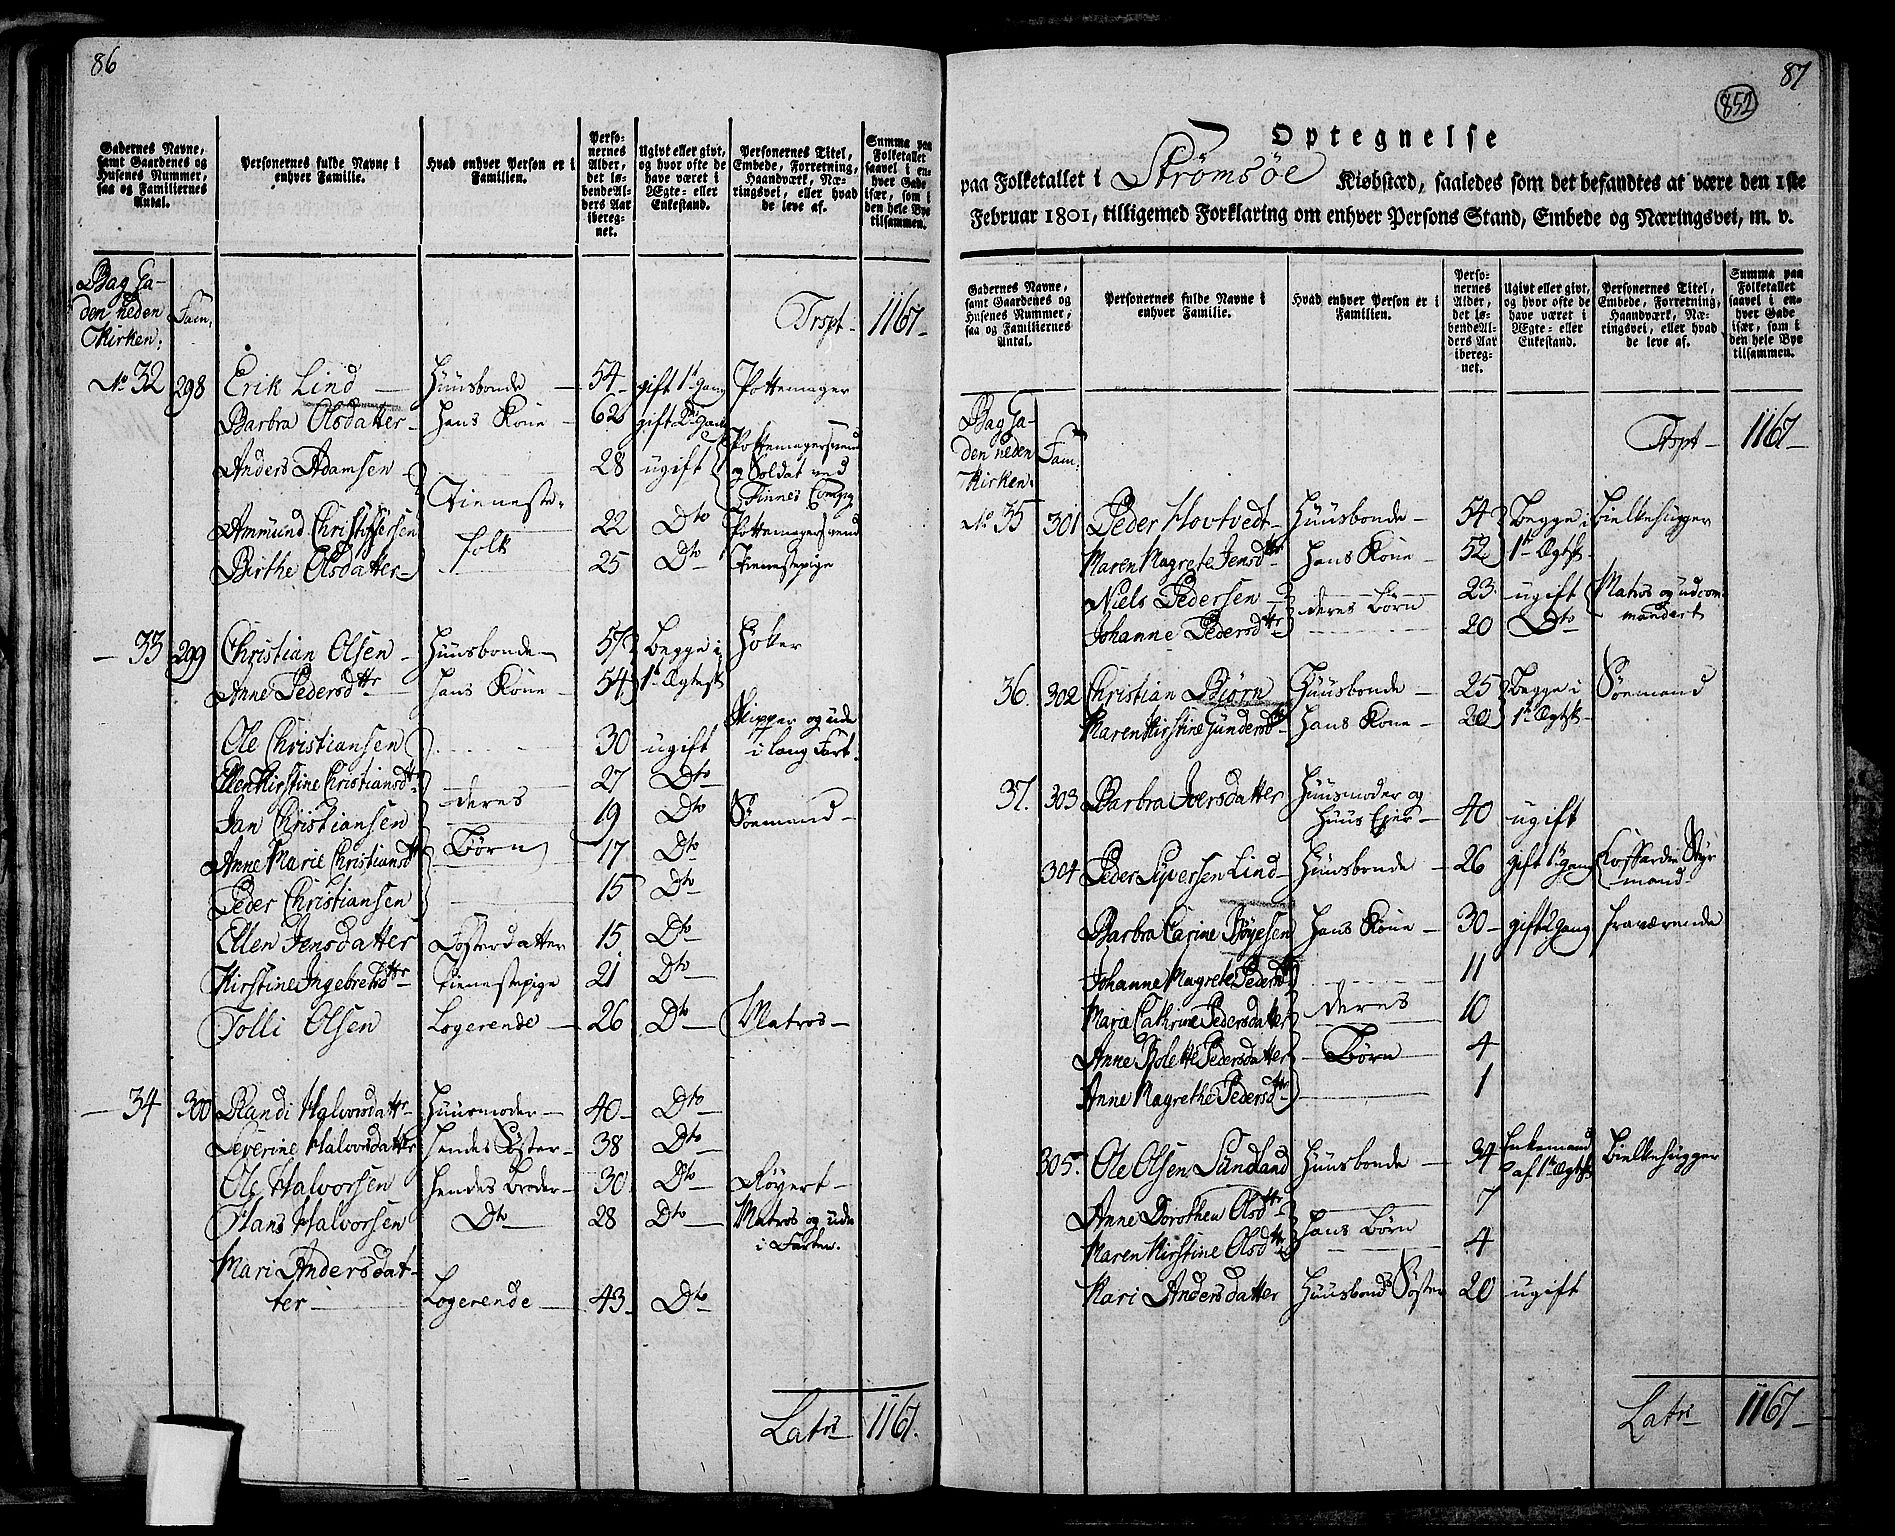 86
Gadernes Navne, samt Gaardenes og Husenes Nummer, saa og Familiernes Antal.
Personernes fulde Navne i enhver Familie.
Hvad enhver Person er i Familien.
Personernes Alder, det løbende Alders Aar iberegnet.
Ugivt eller givt, og hvor ofte de have været i Ægte- eller Enkestand.
Personernes Titel, Embede, Forretning, Haandværk, Næringsvei, eller hvad de leve af.
Summa paa Folketallet saavel i enhver Gade især, som i den hele Bye tilsammen.
Bag Ga-
den neden Fam:
Kirken:
Trspt. 1167-
No 32 298 Erik Lind Huusbonde 54 gift 1ste Gang Pottemager
Barbra Olsdatter Hans Kone 62 gift 2den Gang
Anders Adamsen 28 ugift Pottemagersvend og Soldat ved Finnes Compg
Tieneste-
Ammund Christophersen 22 Dto Pottemagersvend
folk
Birthe Olsdatter 25 Dto Tienestepige
33 299 Christian Olsen Huusbonde 57 Begge i Høker
Anne Pedersdttr Hans Kone 54 1te Ægtesk
Ole Christiansen 30 ugift Skipper og ude i lang Fart.
Ellen Kirstine Christiansdttr 27 Dto
deres
Jan Christiansen 19 Dto Søemand
Anne Marie Christiansdttr Børn 17 Dto
Peder Christiansen 15 Dto
Ellen Jensdatter Fosterdatter 15 Dto
Kirstine Ingebretsdttr Tienestepige 21 Dto
Tolli Olsen Logerende 26 Dto Matros
34 300 Randi Halvorsdattr Huusmoder 40 Dto
Severine Halvorsdatter Hendes Søster 38 Dto
Ole Halvorsen Hendes Broder 30 Dto Røgert
Hans Halvorsen Dto 28 Dto Matros og ude i Farten.
Mari Andersdat-
ter Logerende 43 Dto
Latrs 1167.
87
852
Optegnelse
paa Folketallet i Strømsøe Kiøbstæd, saaledes som det befandtes at være den 1ste
Februar 1801, tilligemed Forklaring om enhver Persons Stand, Embede og Næringsvei, m. v.
Gadernes Navne, samt Gaardenes og Husenes Nummer, saa og Familiernes Antal.
Personernes fulde Navne i enhver Familie.
Hvad enhver Person er i Familien.
Personernes Alder, det løbende Alders Aar iberegnet.
Ugivt eller givt, og hvor ofte de have været i Ægte- eller Enkestand.
Personernes Titel, Embede, Forretning, Haandværk, Næringsvei, eller hvad de leve af.
Summa paa Folketallet saavel i enhver Gade især, som i den hele Bye tilsammen.
Bag Ga-
den neden Fam:
Kirken.
Trspt 1167-
No 35 301 Peder Hovtvedt Huusbonde 54 Begge i Bielkehugger
Maren Magrete Jensdttr Hans Kone 52 1te Ægtsk.
Niels Pedersen deres Børn 23 ugift Matros og udcommandert
Johanne Pedersdttr 20 Dto
36. 302 Christian Biørn Huusbonde 25 Begge i Søemand
Maren Kirstine Gundersdttr Hans Kone 20 1te Ægtsk
37. 303 Barbra Iversdatter Huusmoder og Huus Ejer 40 ugift
304 Peder Syversen Lind Huusbonde 26 gift 1te Gang Coffardie Styrmand
Barbra Carine Bøyesen Hans Kone 30 gift 2 Gang fraværende
Johanne Magrete Pedersdttr 11
Marie Cathrine Pedersdatter deres 10
Anne Bolette Pedersdatter Børn 4
Anne Magrethe Pedersdttr 1
305. Ole Olsen Sundland Huusbonde 34 Enkemand af 1te Ægtsk Bielkehugger
Anne Dorothea Olsdttr 7
hans Børn
Maren Kirstine Olsdttr 4
Mari Andersdatter Huusbonds Søster 20 ugift
Latrs 1167-